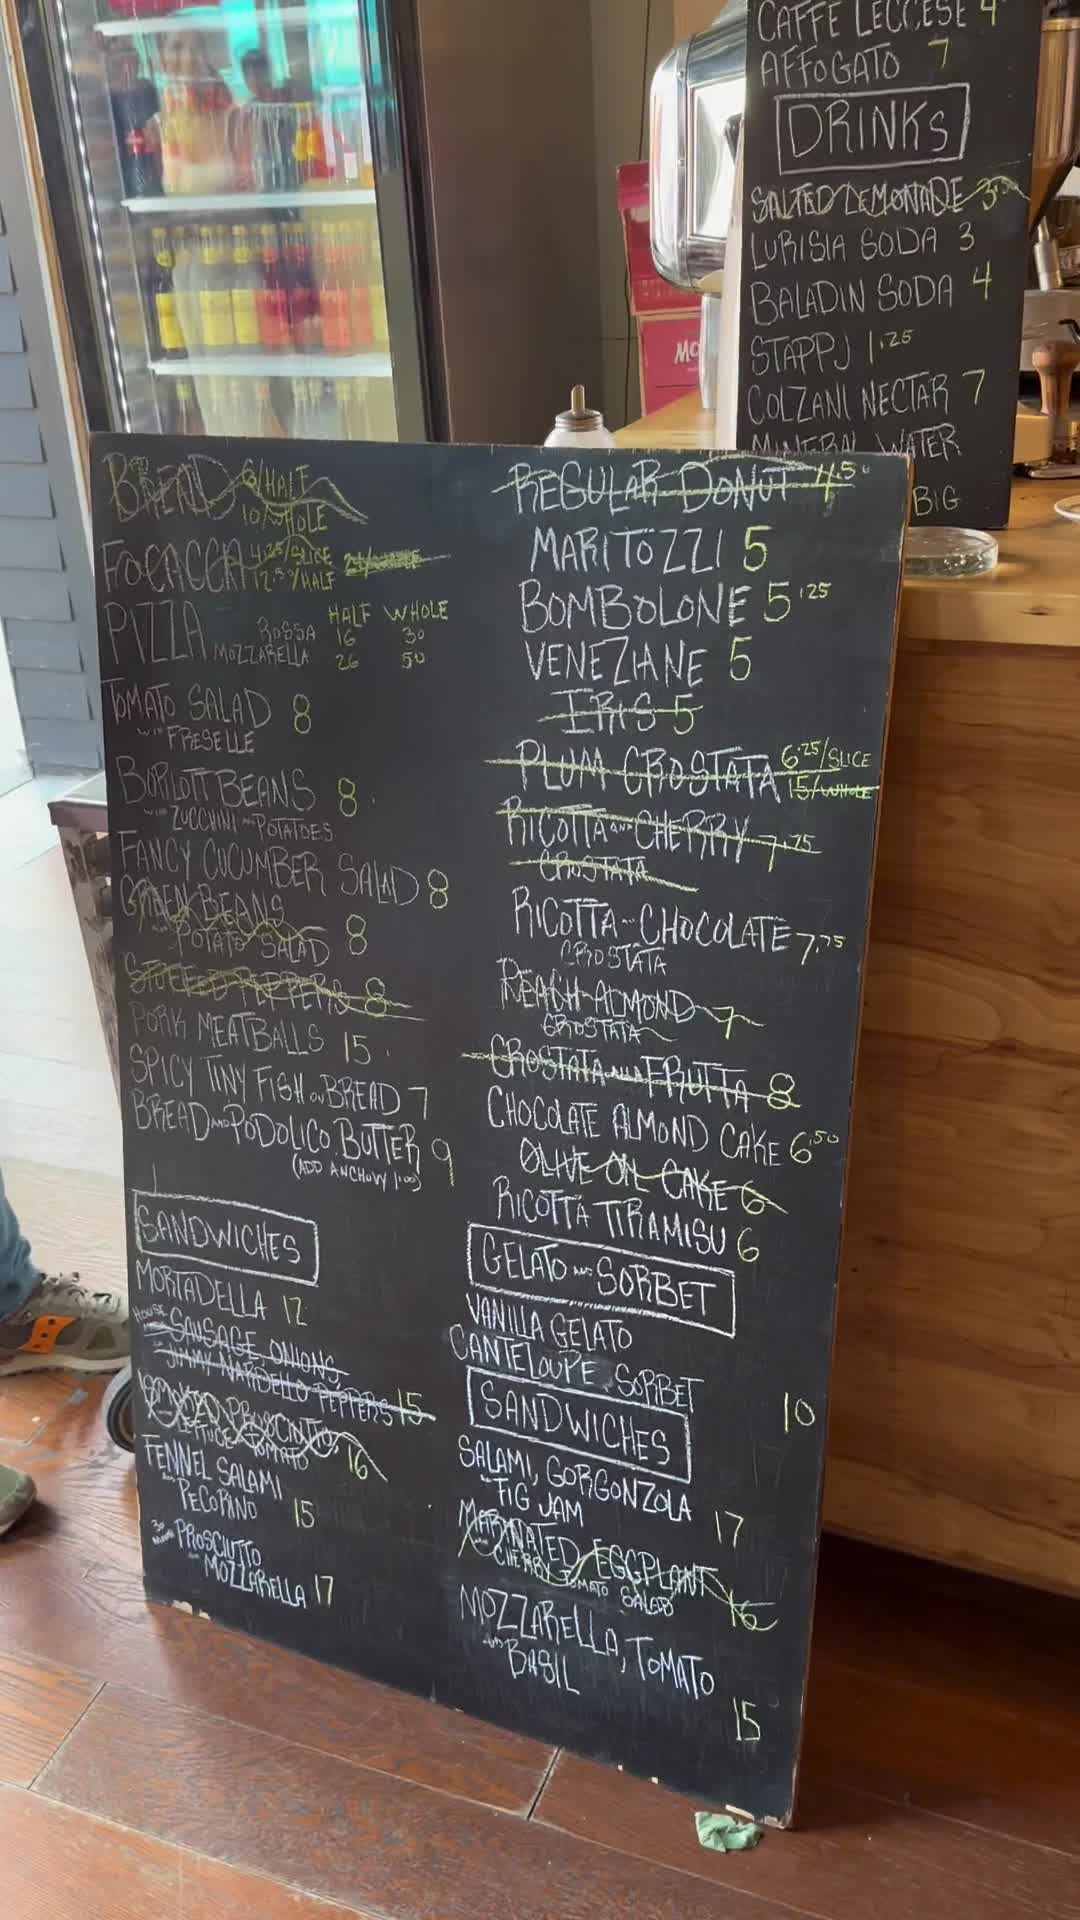 CAFFE LECCESE 4
AFFOGATO 7
DRINKS
SALTED LEMONADE 3.50
LURISIA SODA 3
BALADIN SODA 4
STAPPJ 1.25
COLZANI NECTAR 7
MINERAL WATER
BIG
BREAD 6/HALF
10/WHOLE
FOCACCIA 4.25/SLICE
12.50/HALF
PIZZA HALF WHOLE
ROSSA 16 30
MOZZARELLA 26 50
TOMATO SALAD 8
WITH FRESELLE
BORLOTTI BEANS 8
WITH ZUCCHINI AND POTATOES
FANCY CUCUMBER SALAD 8
GREEN BEANS
AND POTATO SALAD 8
STUFFED PEPPERS 8
PORK MEATBALLS 15
SPICY TINY FISH ON BREAD 7
BREAD AND PODOLICO BUTTER 9
(ADD ANCHOVY 1.00)
SANDWICHES
MORTADELLA 12
HOUSE SAUSAGE, ONIONS,
JIMMY NARDELLO PEPPERS 15
SMOKED PROSCIUTTO,
LETTUCE TOMATO 16
FENNEL SALAMI
AND PECORINO 15
30 MONTH PROSCIUTTO
AND MOZZARELLA 17
REGULAR DONUT 4.50
MARITOZZI 5
BOMBOLONE 5.25
VENEZIANE 5
IRIS 5
PLUM CROSTATA 6.25/SLICE
15/WHOLE
RICOTTA AND CHERRY 7.75
CROSTATA
RICOTTA AND CHOCOLATE 7.75
CROSTATA
PEACH-ALMOND 7
CROSTATA
CROSTATA ALLA FRUTTA 8
CHOCOLATE ALMOND CAKE 6.50
OLIVE OIL CAKE 6
RICOTTA TIRAMISU 6
GELATO AND SORBET
VANILLA GELATO
CANTELOUPE SORBET
10
SANDWICHES
SALAMI, GORGONZOLA
FIG JAM 17
MARINATED EGGPLANT
WITH CHERRY TOMATO SALAD 16
MOZZARELLA, TOMATO
AND BASIL
15